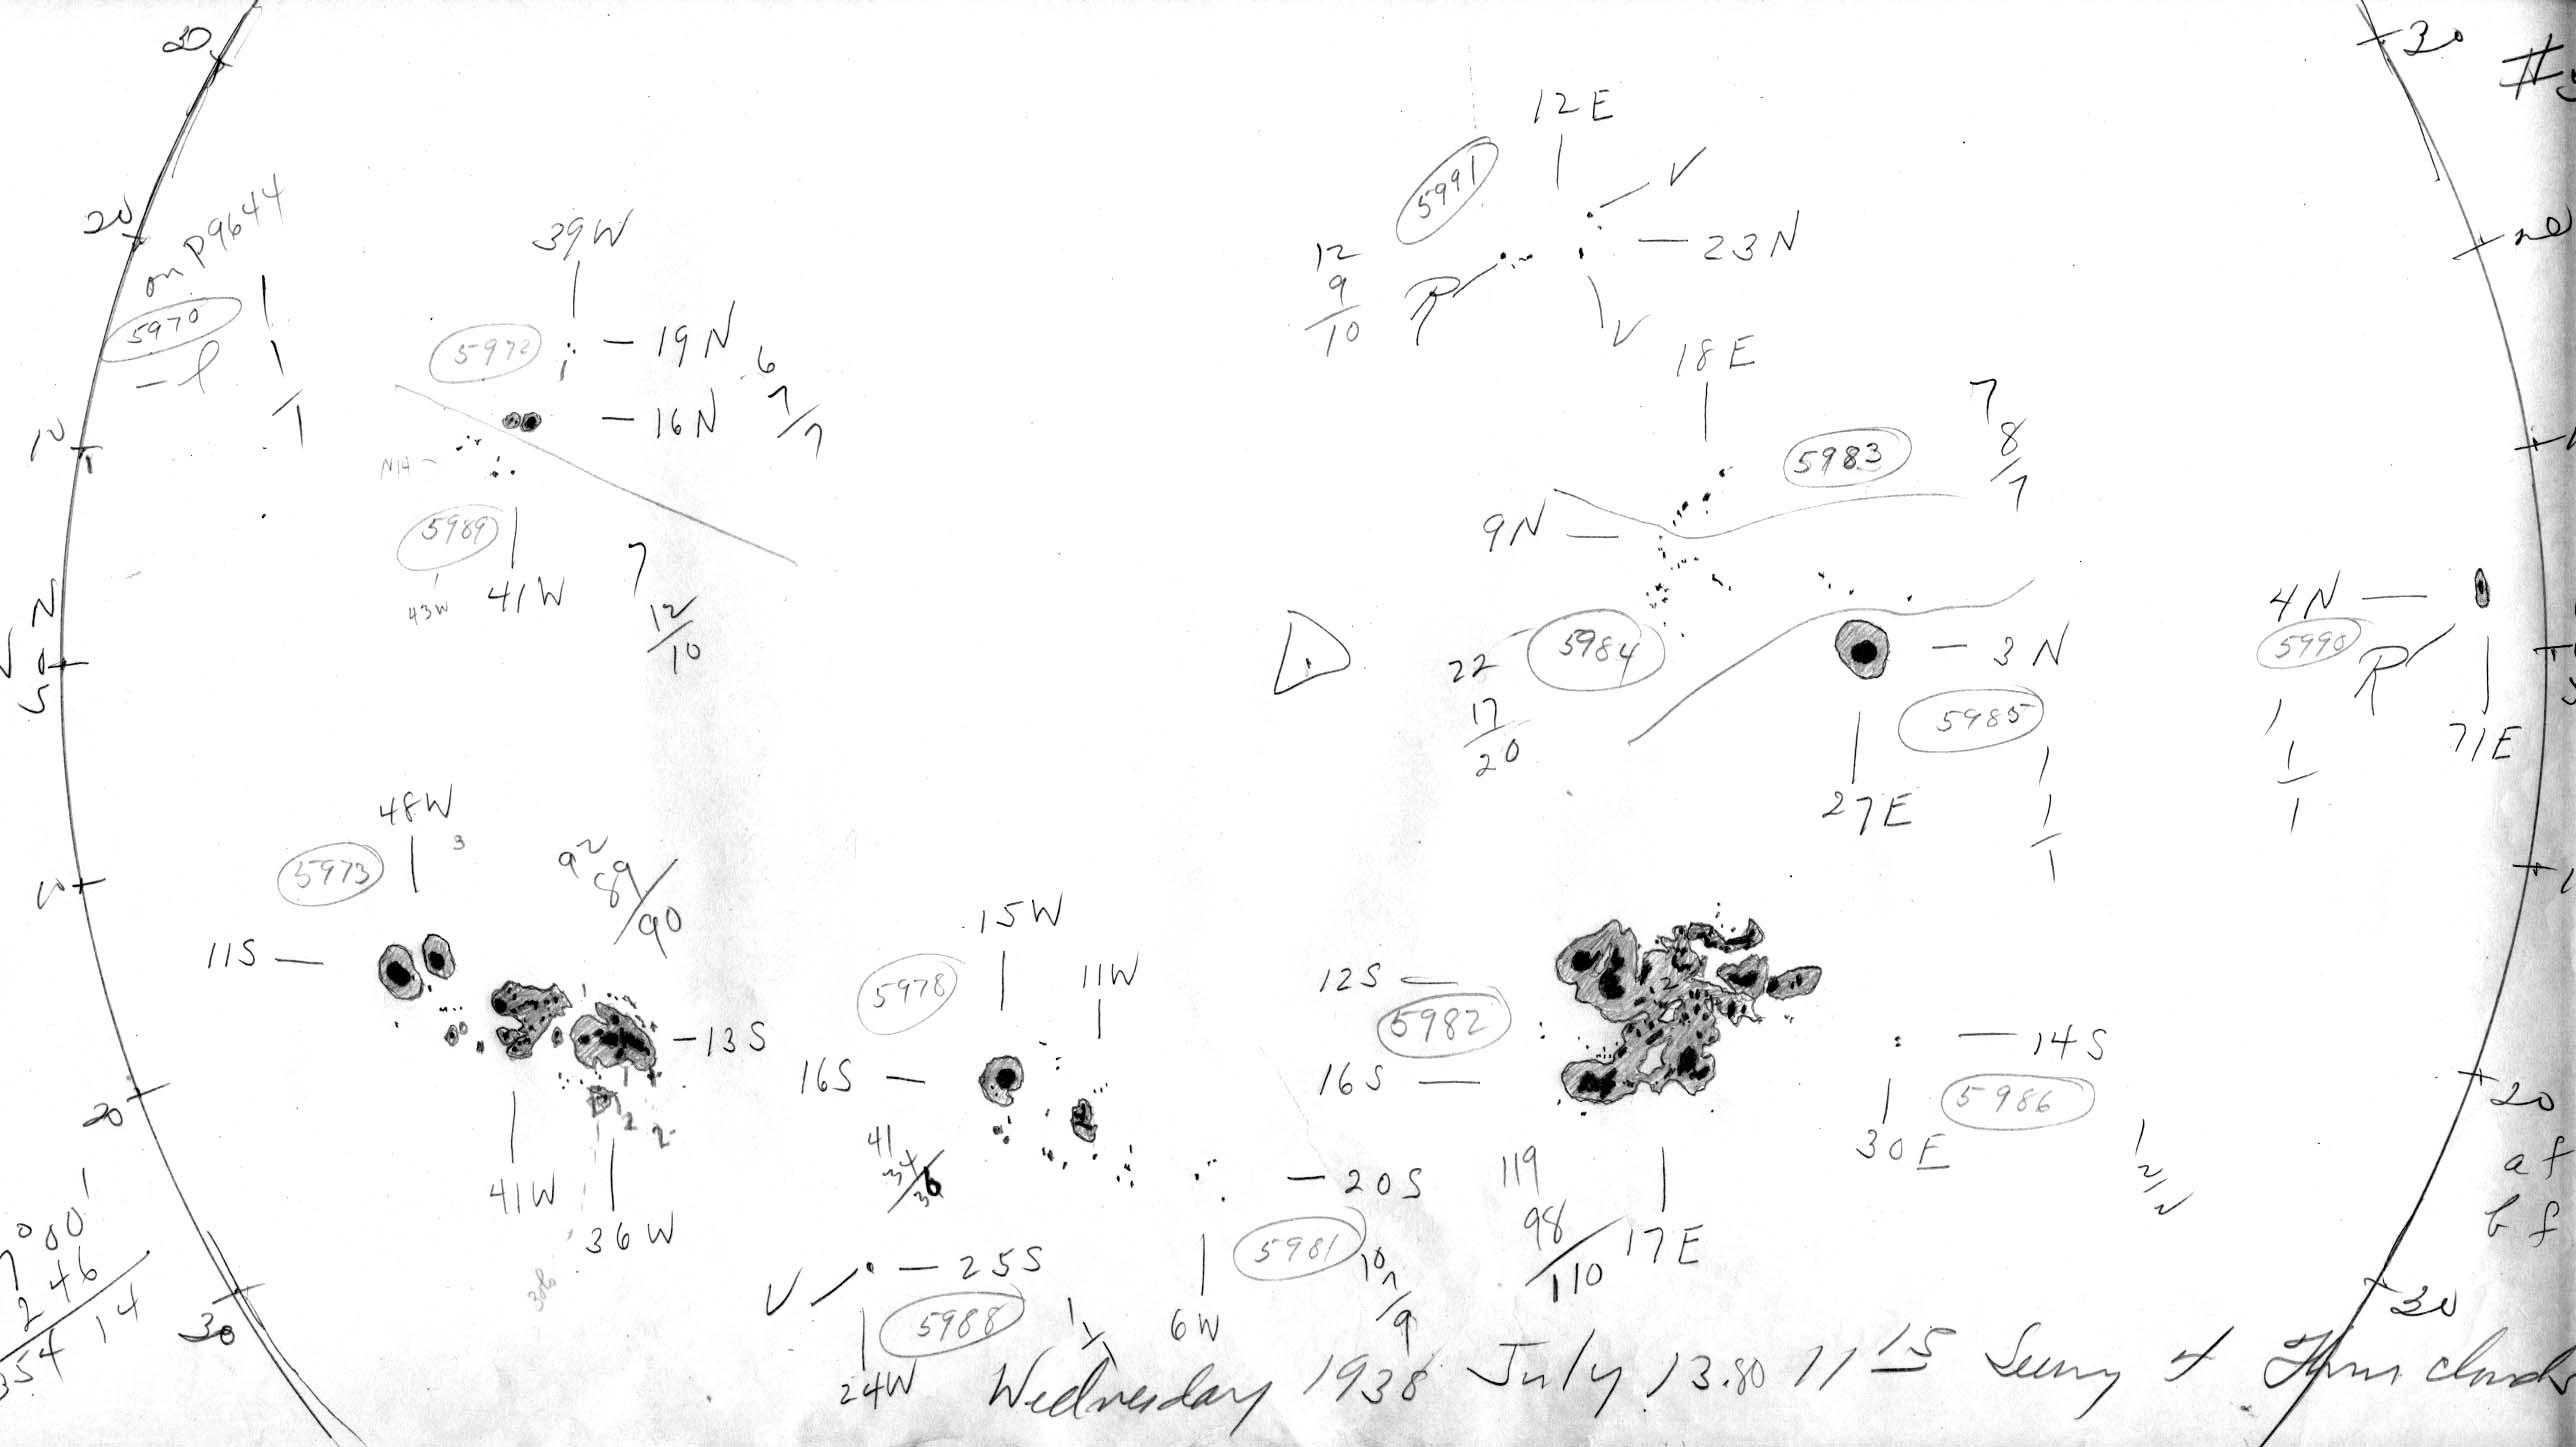 30
20
on p9644
5970
-l
1
1
1
10
N
0
S
10
20
30
39W
5972
- 19N
- 16N
6
7
7
N14 -
5989
43W
41W
7
12
10
12E
5991
V
- 23N
12
9
10
R
V
18E
5983
7
8
7
9N -
22
17
20
5984
- 3N
5985
27E
1
1
1
4N -
5990
R
71E
1
1
1
48W
3
5973
11S -
92
89
90
- 13S
2
2
41W
36W
15W
5978
11W
16S -
41
34
36
- 20S
5981
10
7
9
6W
V
- 25S
5988
1
1
24W
12S -
5982
16S -
119
98
110
17E
- 14S
5986
30E
1
2
2
30
20
20
af
bf
30
246
354 14
Wednesday 1938 July 13.80 11 15 Seeing 4 Thin clouds